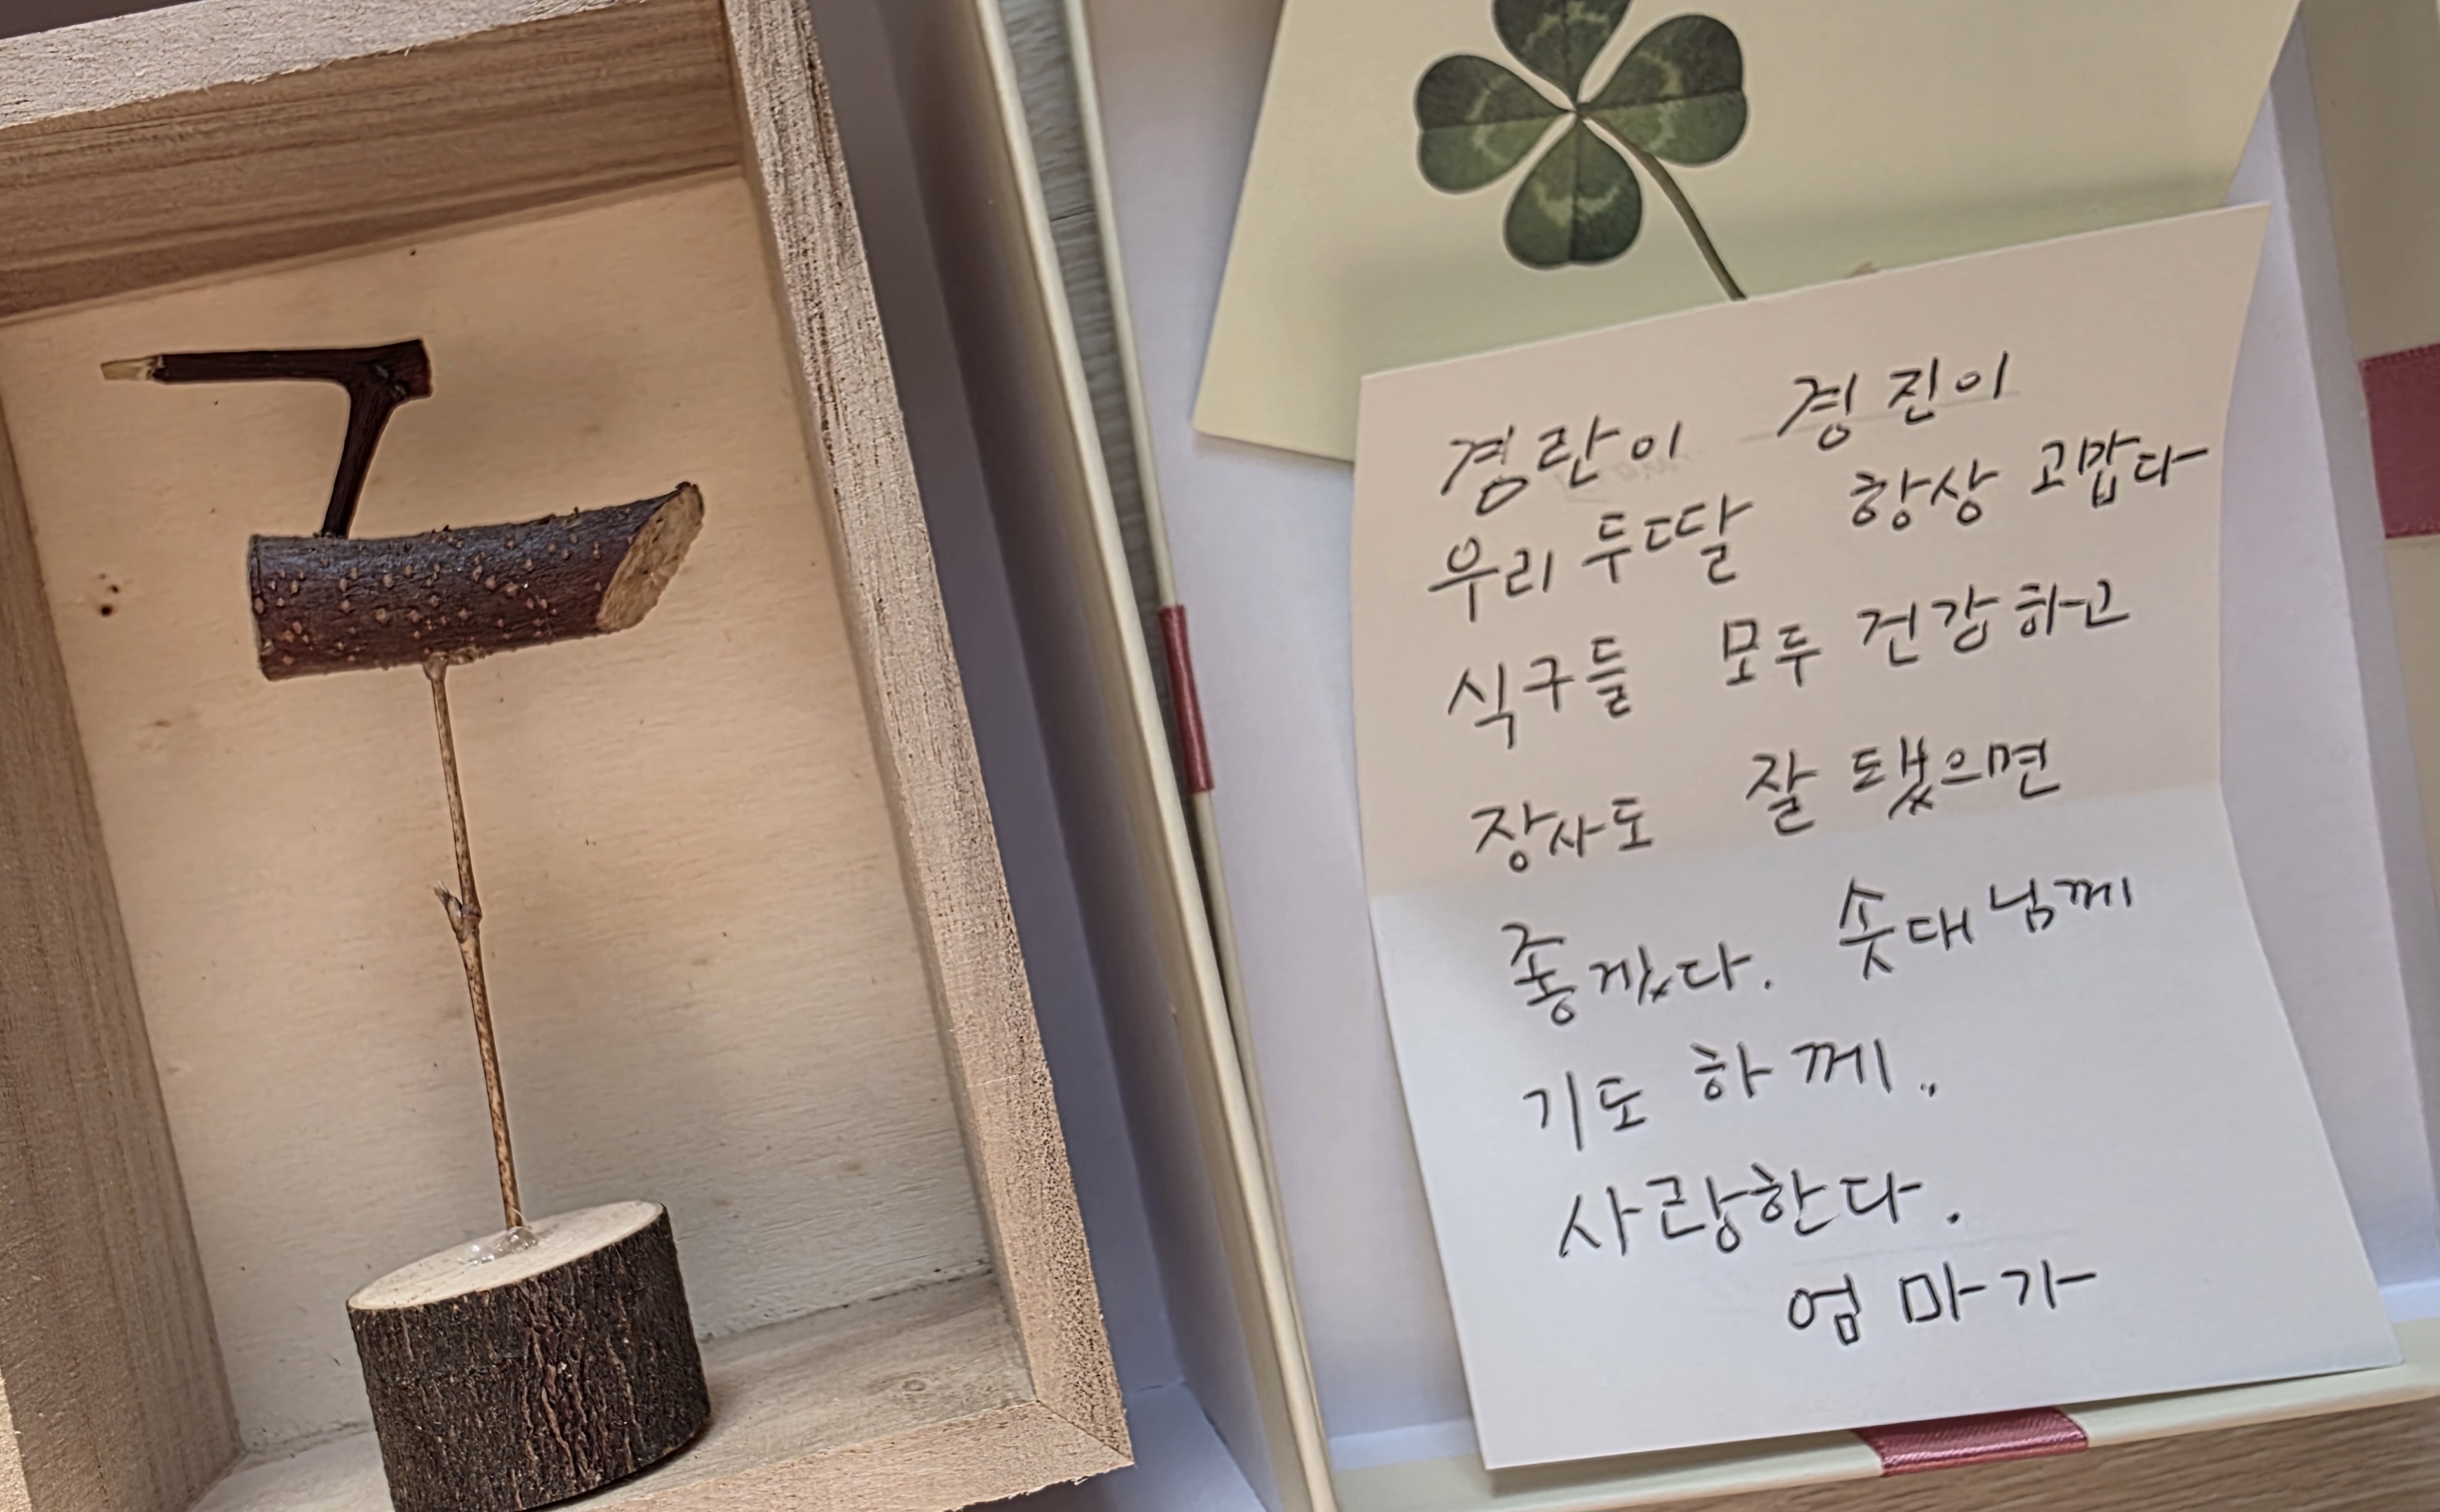 겸란이 경진이
우리 두딸 항상 고맙다
식구들 모두 건강하고
장사도 잘 됐으면
좋겠다. 솟대님께
기도 하께..
사랑한다.
엄마가